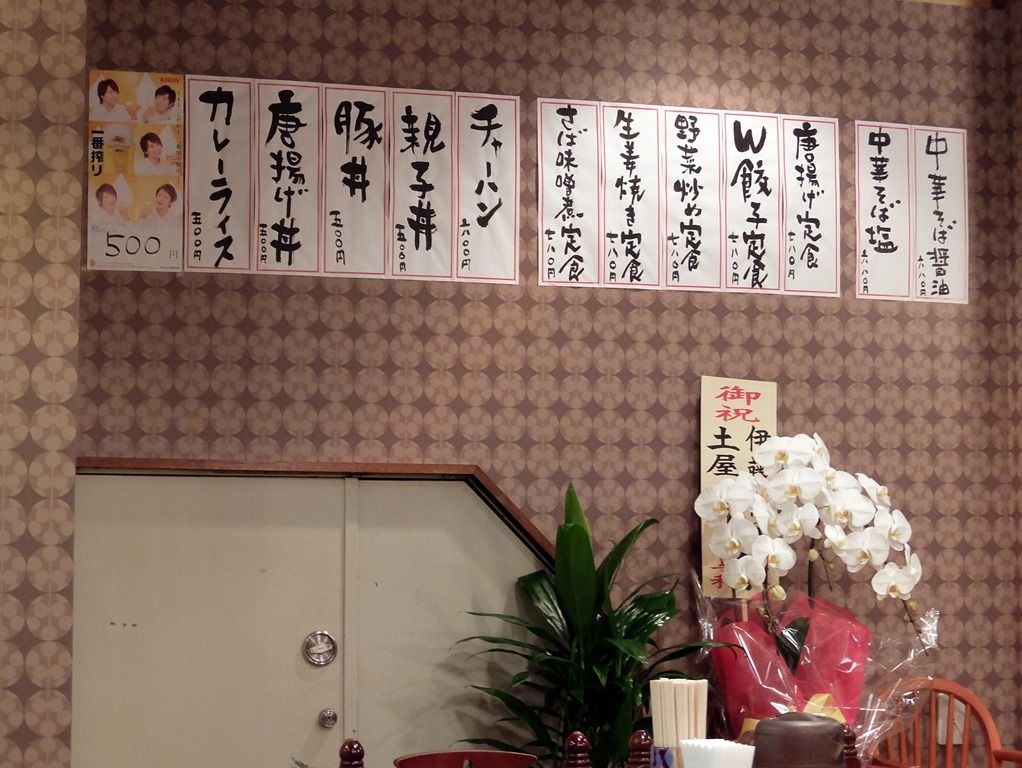 中華そば醤油
六八〇円
中華そば塩
六八〇円
唐揚げ定食
七八〇円
W餃子定食
七八〇円
野菜炒め定食
七八〇円
生姜焼き定食
七八〇円
さば味噌煮定食
七八〇円
チャーハン
六〇〇円
親子丼
五〇〇円
豚丼
五〇〇円
唐揚げ丼
五〇〇円
カレーライス
五〇〇円
KIRIN
一番搾り
500円
御祝
伊藤
土屋